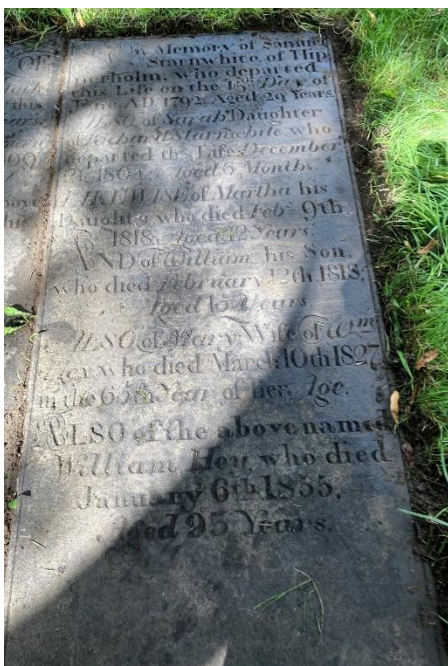 In Memory of Samuel
Starnwhite of Hip
perholm, who departed
this Life on the 15th Day of
June AD 1792, Aged 29 Years.
ALSO of Sarah Daughter
of Richard Starnwhite, who
departed this Life December
1804, Aged 6 Months.
LIKEWISE of Martha his
Daughter who died Feb 9th
1818, Aged 12 Years.
AND of William his Son,
who died February 12th 1818,
Aged 15 Years
ALSO of Mary Wife of Wm
Hey, who died March 10th 1827
in the 65th Year of her Age.
ALSO of the above name
William Hey, who died
January 6th 1855,
Aged 95 Years.